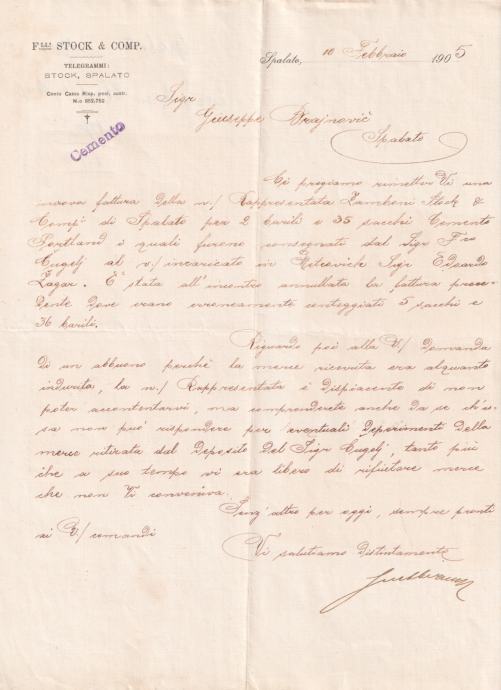 F.lli STOCK & COMP.
TELEGRAMMI:
STOCK, SPALATO
Conto Cassa Risp. post. austr.
N.o 852.752
Cemento
Spalato, 10 Febbraio 1905
Sigr
Giuseppe Brajnović
Spalato
Ci pregiamo rimetterVi una
nuova fattura della n./ Rappresentata Zamboni Stock &
Comp.i di Spalato per 2 barili e 35 sacchi Cemento
Portland i quali furono consegnati dal Sigr F.co
Cugelj al v./ incaricato in Sigr Edoardo
Lagar. È stata all'incontro annullata la fattura prece-
dente dove erano erroneamente conteggiati 5 sacchi e
36 barili.
Riguardo poi alla V./ domanda
di un abbuono perchè la merce ricevuta era alquanto
indurita, la n./ Rappresentata è dispiacente di non
poter accontentarvi, ma comprenderete anche da se ch'es-
sa non può rispondere per eventuali deperimenti della
merce ritirata dal deposito del Sigr Cugelj, tanto più
che a suo tempo vi era libero di rifiutare merce
che non Vi conveniva.
Senz'altro per oggi, sempre pronti
ai V./ comandi
Vi salutiamo distintamente